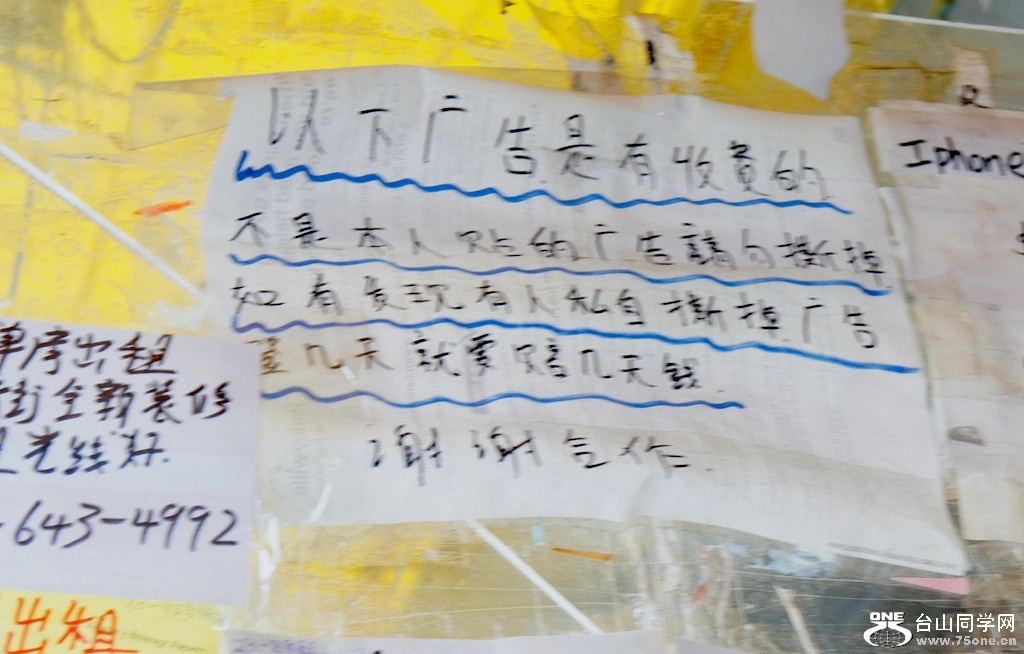 以下广告是有收费的
不是本人贴的广告請勿撕掉
如有发现有人私自撕掉广告
登几天就要赔几天钱.
谢谢合作.
Iphone
单房出租
街全新装修
光线好.
-643-4992
出租
ONE 台山同学网
www.75one.cn